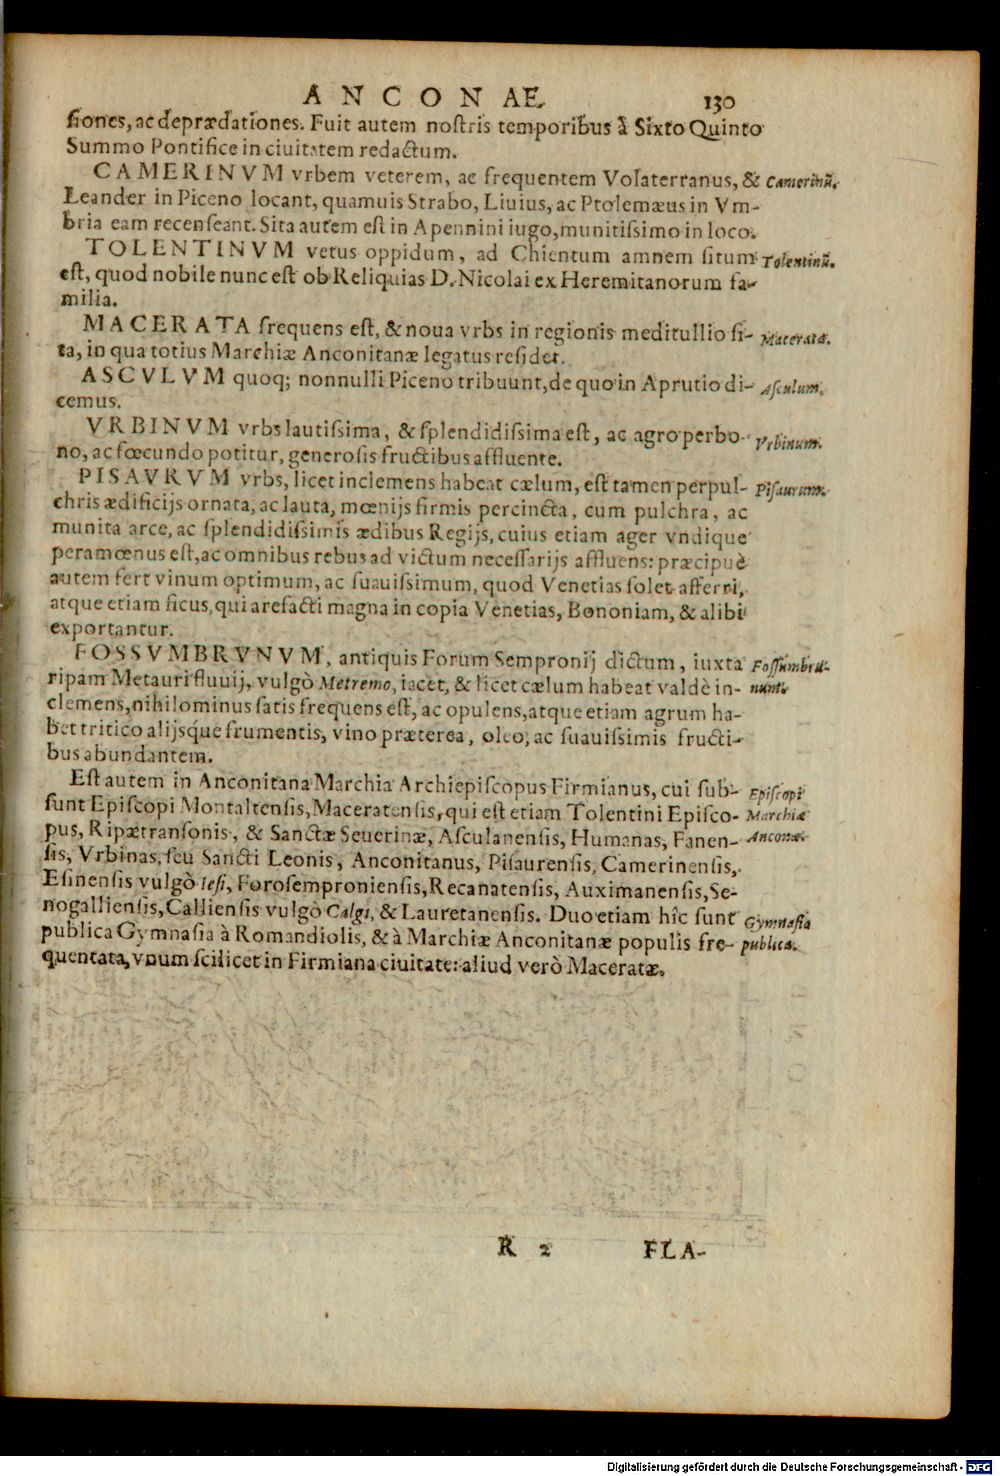 ANCONAE. 130
ſiones, ac deprædationes. Fuit autem noſtris temporibus à Sixto Quinto
Summo Pontifice in ciuitatem redactum.
CAMERINVM vrbem veterem, ac frequentem Volaterranus, & Camerinū.
Leander in Piceno locant, quamuis Strabo, Liuius, ac Ptolemæus in Vm-
bria eam recenſeant. Sita autem eſt in Apennini iugo, munitiſsimo in loco.
TOLENTINVM vetus oppidum, ad Chientum amnem ſitum Tolentinū.
eſt, quod nobile nunc eſt ob Reliquias D. Nicolai ex Heremitanorum fa-
milia.
MACERATA frequens eſt, & noua vrbs in regionis meditullio ſi- Macerata.
ta, in qua totius Marchiæ Anconitanæ legatus reſidet.
ASCVLVM quoq; nonnulli Piceno tribuunt, de quo in Aprutio di- Aſculum.
cemus.
VRBINVM vrbs lautiſsima, & ſplendidiſsima eſt, ac agro perbo- Vrbinum.
no, ac fœcundo potitur, generoſis fructibus affluente.
PISAVRVM vrbs, licet inclemens habeat cælum, eſt tamen perpul- Piſaurum.
chris ædificijs ornata, ac lauta, mœnijs firmis percincta, cum pulchra, ac
munita arce, ac ſplendidiſsimis ædibus Regijs, cuius etiam ager vndique
peramœnus eſt, ac omnibus rebus ad victum neceſſarijs affluens: præcipuè
autem fert vinum optimum, ac ſuauiſsimum, quod Venetias ſolet afferri,
atque etiam ficus, qui arefacti magna in copia Venetias, Bononiam, & alibi
exportantur.
FOSSVMBRVNVM, antiquis Forum Sempronij dictum, iuxta Foſſumbru-
ripam Metauri fluuij, vulgò Metremo, iacet, & licet cælum habeat valdè in- num.
clemens, nihilominus ſatis frequens eſt, ac opulens, atque etiam agrum ha-
bet tritico alijsq́ue frumentis, vino præterea, oleo, ac ſuauiſsimis fructi-
bus abundantem.
Eſt autem in Anconitana Marchia Archiepiſcopus Firmianus, cui ſub- Epiſcopi
ſunt Epiſcopi Montaltenſis, Maceratenſis, qui eſt etiam Tolentini Epiſco- Marchiæ
pus, Ripætranſonis, & Sanctæ Seuerinæ, Aſculanenſis, Humanas, Fanen- Anconæ.
ſis, Vrbinas, ſeu Sancti Leonis, Anconitanus, Piſaurenſis, Camerinenſis,
Eſinenſis vulgò Ieſi, Foroſempronienſis, Recanatenſis, Auximanenſis, Se-
nogallienſis, Callienſis vulgò Calgi, & Lauretanenſis. Duo etiam hîc ſunt Gymnaſia
publica Gymnaſia à Romandiolis, & à Marchiæ Anconitanæ populis fre- publica.
quentata, vnum ſcilicet in Firmiana ciuitate: aliud verò Maceratæ.
R 2 FLA-
Digitalisierung gefördert durch die Deutsche Forschungsgemeinschaft - DFG